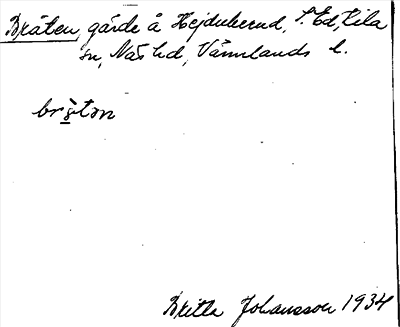 Bråten, gärde å Hejdukerud, S. Ed, Kila
sn, Näs hd, Värmlands l.
bròtən
Britta Johansson 1934